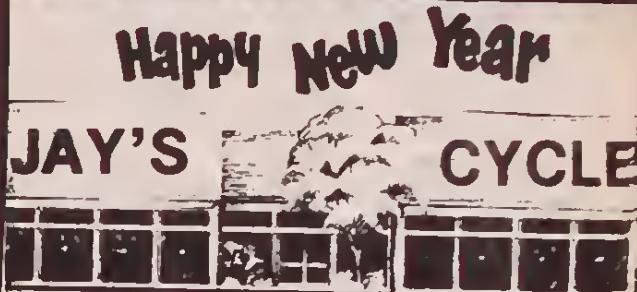 Happy New Year
JAY'S CYCLE